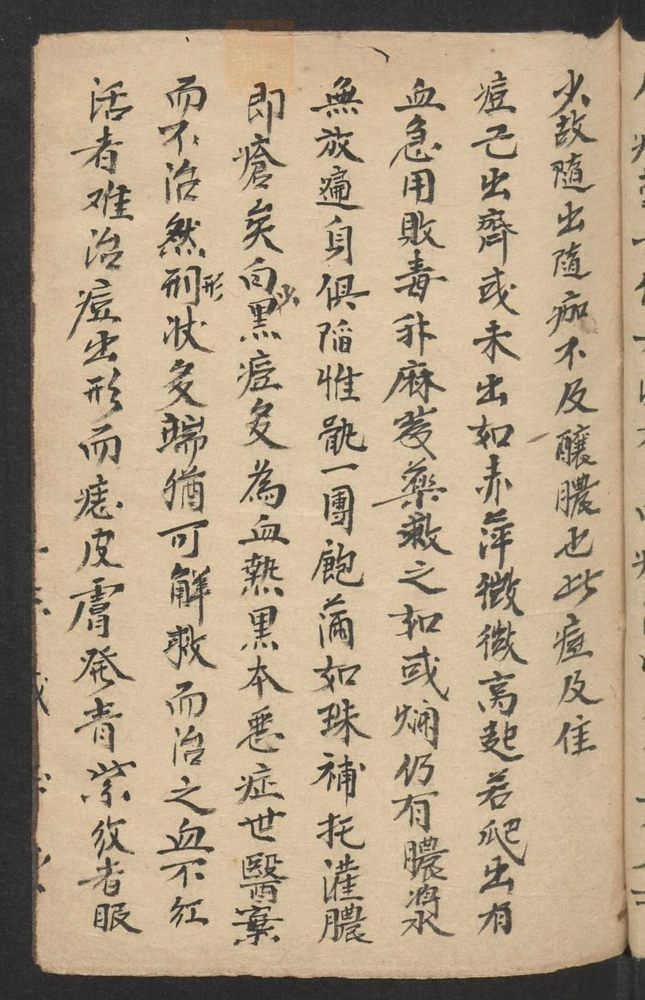 少故隨出隨痂不及釀膿也此痘及佳
痘已出齊或未出如赤萍微微高起若爬出有
血急用敗毒升麻葛藥救之如或爛仍有膿漿
無放遍身俱陷惟骩一團飽滿如珠補托灌膿
即瘡矣白少黑痘多為血熱黑本惡症世醫棄
而不治然刑形狀多端猶可解救而治之血不紅
活者难治痘出形而痣皮膚発青紫紋者眼